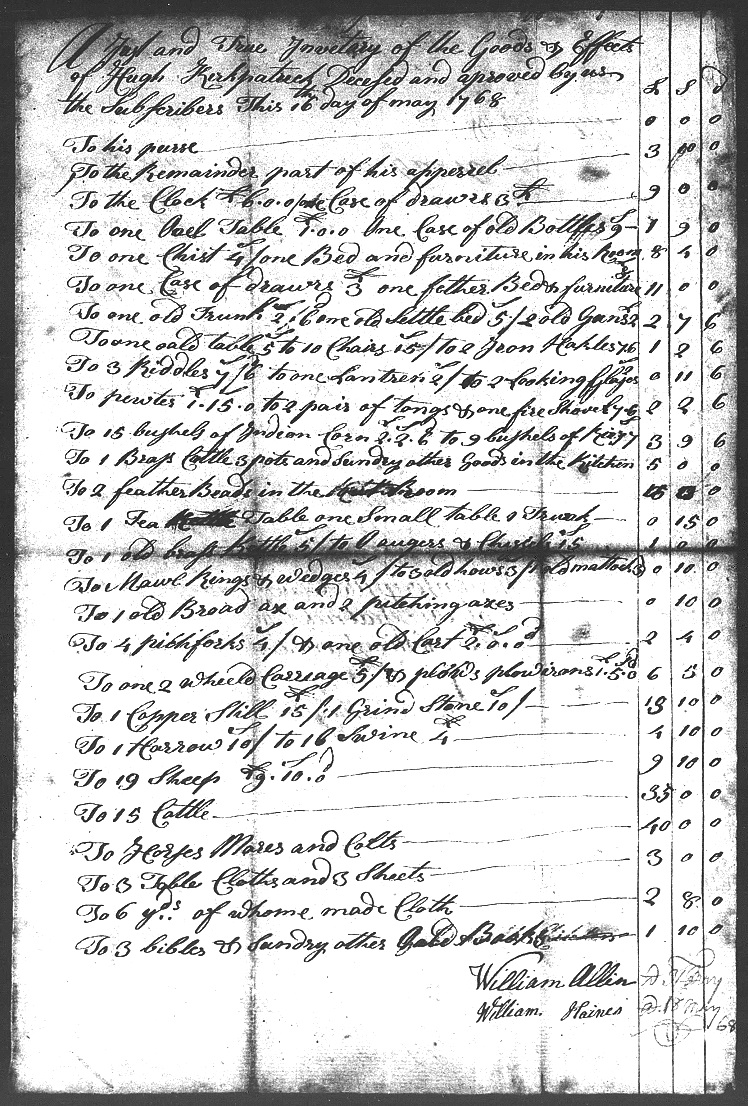 A Just and True Invetary of the Goods & Effects
of Hugh Kerkpatreck Decesed and aproved by us
the Subscribers This 16th day of may 1768 £ S D
To his purse 0 0 0
To the Remainder part of his apperrel 3 00 0
To the Clock £6.0.0 one Case of drawrs 3£ 9 0 0
To one Ovel Table £1.0.0 One Case of old Bottles 9 1 9 0
To one Chist 4/ one Bed and furniture in his Room £8 8 4 0
To one Case of drawrs £3 one fether Bed & furniture 11 0 0
To one old Trunk 2.6 one old Settle bed 5/ 2 old Guns 2 2 7 6
To one oald table 5 to 10 Chairs 15/ to 2 Iron Hakles 7.6 1 2 6
To 3 Riddles 7/6 to one Lantren 2/ to 2 Looking Glases 0 11 6
To pewter £1.15.0 to 2 pair of tongs & one fire Shovel 7.6 2 2 6
To 15 bushels of Indian Corn 2.2.6 to 9 bushels of 3 9 6
To 1 Brass Cattle 3 pots and Sundry other Goods in the Kitchen 5 0 0
To 2 feather Beads in the room 0
To 1 Tea Table one Small table 1 Trunk 0 15 0
To 1 old brass Kettle 5/ to augers & 15 1 0 0
To Mawl Rings & wedges 4/ to 3 old hows 3/ 1 old mattock 3 0 10 0
To 1 old Broad ax and 2 pitching axes 0 10 0
To 4 pichforks 4/ & one old Cart £2.0.0 2 4 0
To one 2 wheeld Carriage £5/ & plows plow irons 1.5.0 6 5 0
To 1 Copper Still £15/ 1 Grind Stone 10/ 10 0
To 1 Harrow 10/ to 16 Swine £4 4 10 0
To 19 Sheep £9.10.0 9 10 0
To 15 Cattle 35 0 0
To Horses Mares and Colts 40 0 0
To 3 Table Cloths and 3 Sheets 3 0 0
To 6 yds of whome made Cloth 2 8 0
To 3 bibles & Sundry other Books 1 10 0
William Allin
William Haines
18 May
68